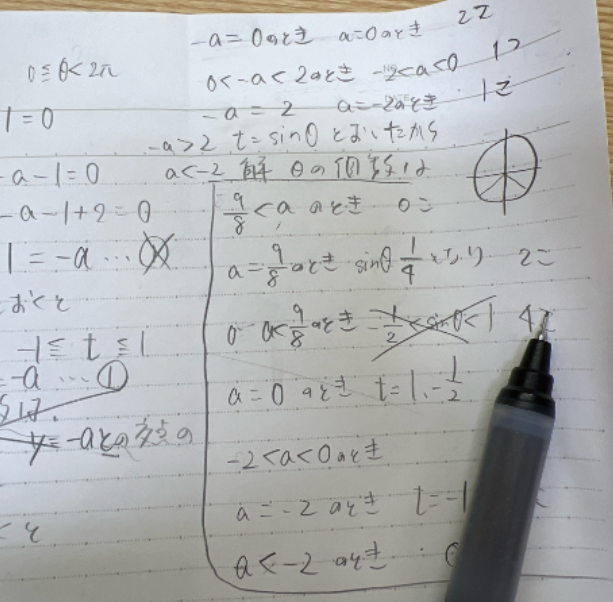 0≦θ<2π
1=0
-a-1=0
-a-1+2=0
1=-a…
おくと
-1≦t≦1
=-a…①
y=-aとの交点の
-a=0のとき a=0のとき 2コ
0<-a<2のとき -2<a<0 1コ
-a=2 a=-2のとき 1コ
-a>2 t=sinθとおいたから
a<-2 解θの個数は
9/8<aのとき 0コ
a=9/8のとき sinθ 1/4 となり 2コ
0 a<9/8のとき -1/2<sinθ<1 4コ
a=0のとき t=1,-1/2
-2<a<0のとき
a=-2のとき t=-1
a<-2のとき